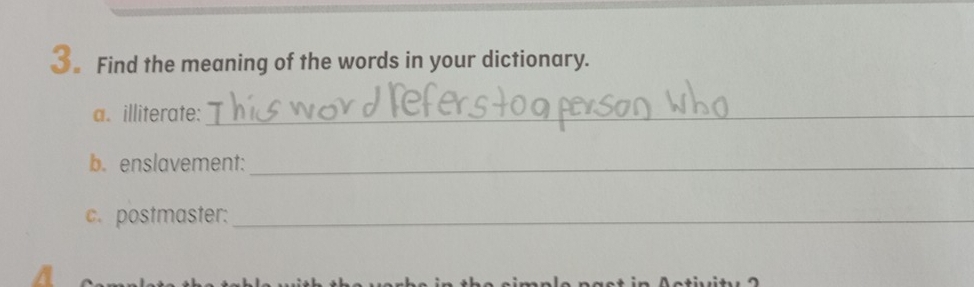 3. Find the meaning of the words in your dictionary.
a. illiterate: This word refers to a person who
b. enslavement:
c. postmaster:
4 Complete the table with the verbs in the simple past in Activity 2